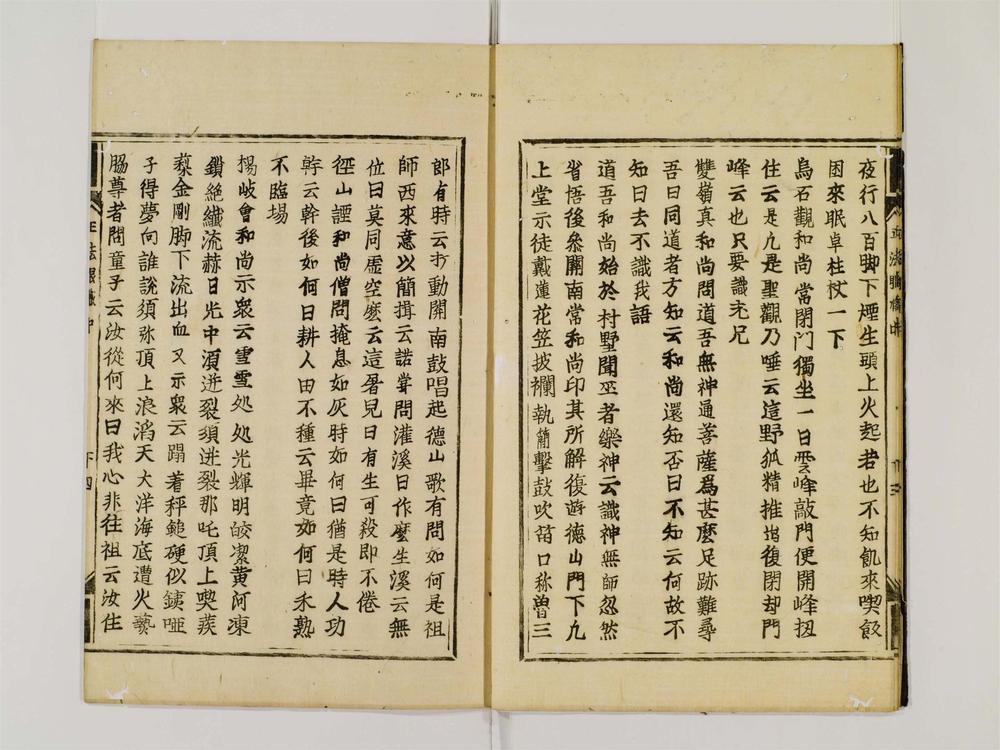 夜行八百脚下煙生頭上火起若也不知飢來喫飯
困來眠卓柱杖一下
烏石觀和尚常閉門獨坐一日雲峰敲門便開峰搊
住云是九是聖觀乃唾云這野狐精推出復閉却門
峰云也只要識老兄
雙嶺真和尚問道吾無神通菩薩為甚麼足跡難尋
吾曰同道者方知云和尚還知否曰不知云何故不
知曰去不識我語
道吾和尚始於村墅聞巫者樂神云識神無師忽然
省悟後參關南常和尚印其所解復遊德山門下九
上堂示徒戴蓮花笠披襴執簡擊鼓吹笛口称魯三
郎有時云打動關南鼓唱起德山歌有問如何是祖
師西來意以簡揖云諾甞問灌溪曰作麼生溪云無
位曰莫同虛空麼云這屠兒曰有生可殺即不倦
徑山諲和尚僧問掩息如灰時如何曰猶是時人功
幹云幹後如何曰耕人田不種云畢竟如何曰禾熟
不臨場
楊岐會和尚示衆云雪雪処処光輝明皎潔黃河凍
鎖絕纖流赫日光中須迸裂須迸裂那吒頂上喫蒺
蔾金剛脚下流出血又示衆云蹋著秤鎚硬似鐵啞
子得夢向誰說須弥頂上浪滔天大洋海底遭火爇
脇尊者問童子云汝從何來曰我心非往祖云汝住
正法眼藏中
下四